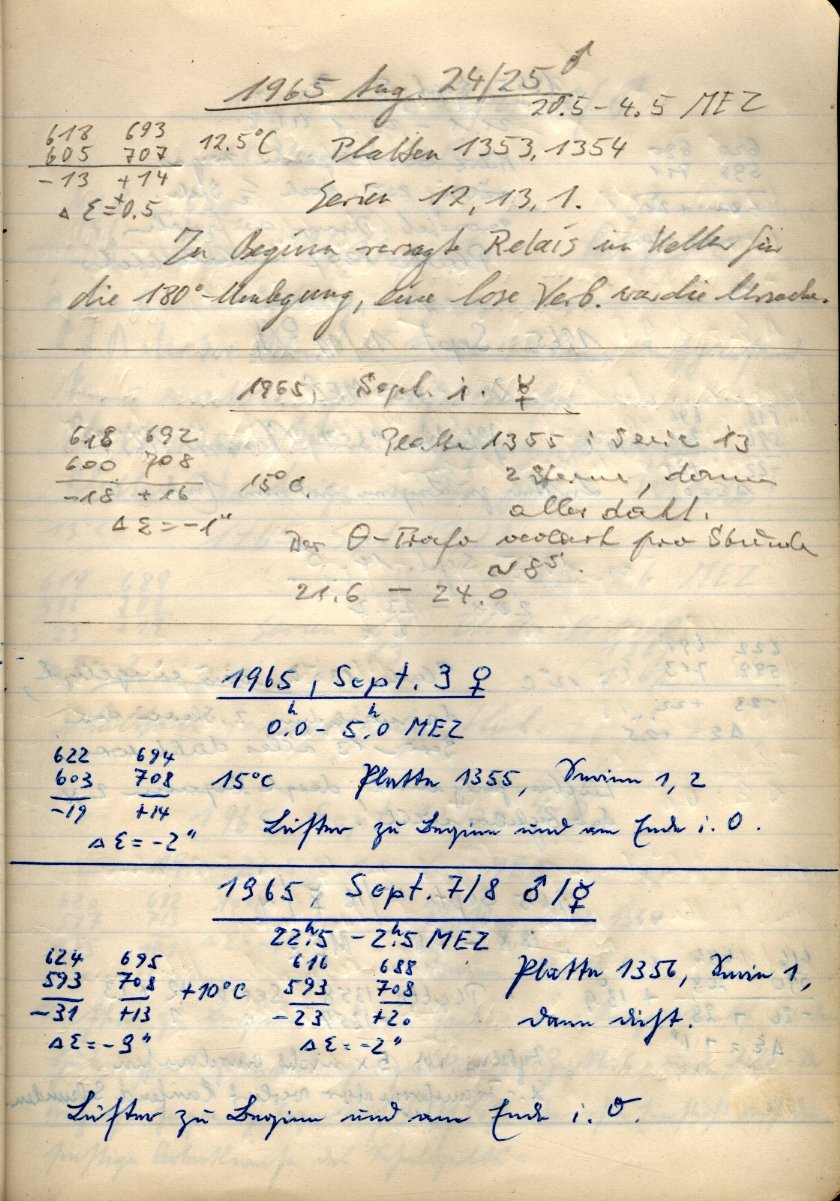 1965 Aug. 24/25 ♂
20.5 – 4.5 MEZ
613 693
605 707 12.5°C Platten 1353, 1354
-13 +14
Δ Σ = +0.5 Serien 12, 13, 1.
Zu Beginn versagte Relais im Keller für
die 180°-Umlegung, eine lose Verb. war die Ursache.
1965 Sept. 1. ☿
618 692 Platte 1355 : Serie 13
600 708 15°C. 2 Sterne, dann
-18 +16 alles dicht.
Δ Σ = -1"
Der Θ-Trafo verliert pro Stunde
~ 8s.
21.6 – 24.0
1965, Sept. 3 ♀
0.h0 – 5.h0 MEZ
622 694
603 708 15°C Platte 1355, Serien 1, 2
-19 +14
Δ Σ = -2" Lüfter zu Beginn und am Ende i. O.
1965, Sept. 7/8 ♂/☿
22.h5 – 2.h5 MEZ
624 695 616 688
593 708 +10°C 593 708 Platte 1356, Serien 1,
-31 +13 -23 +20 dann dicht.
Δ Σ = -9" Δ Σ = -2"
Lüfter zu Beginn und am Ende i. O.